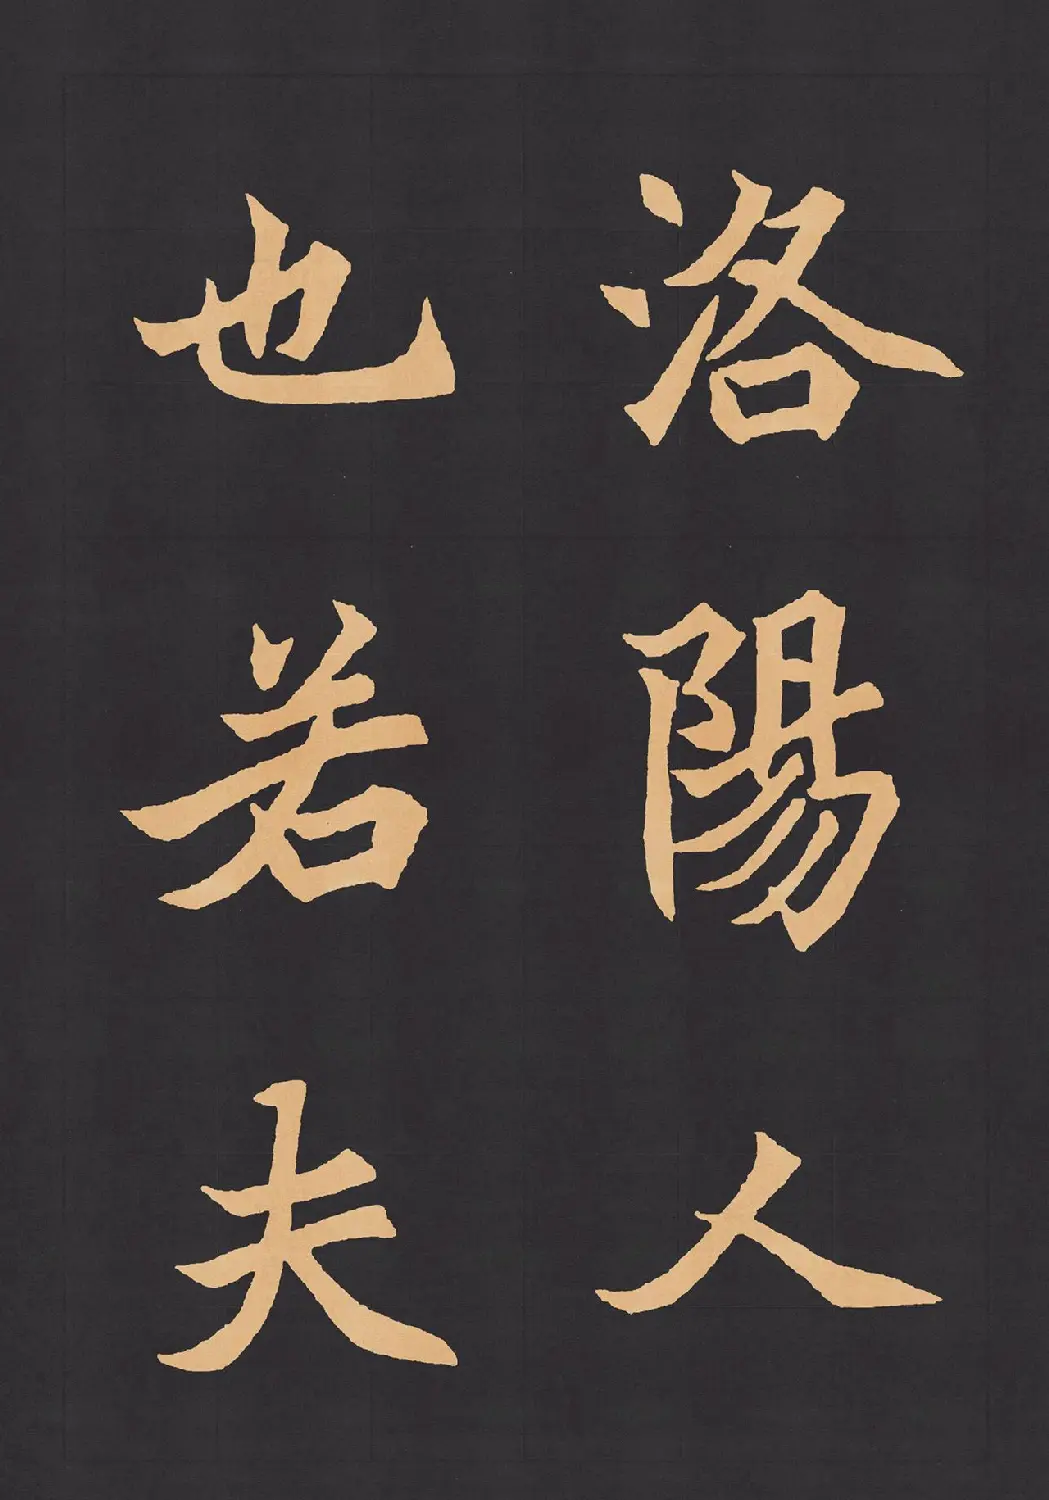 洛陽人
也若夫